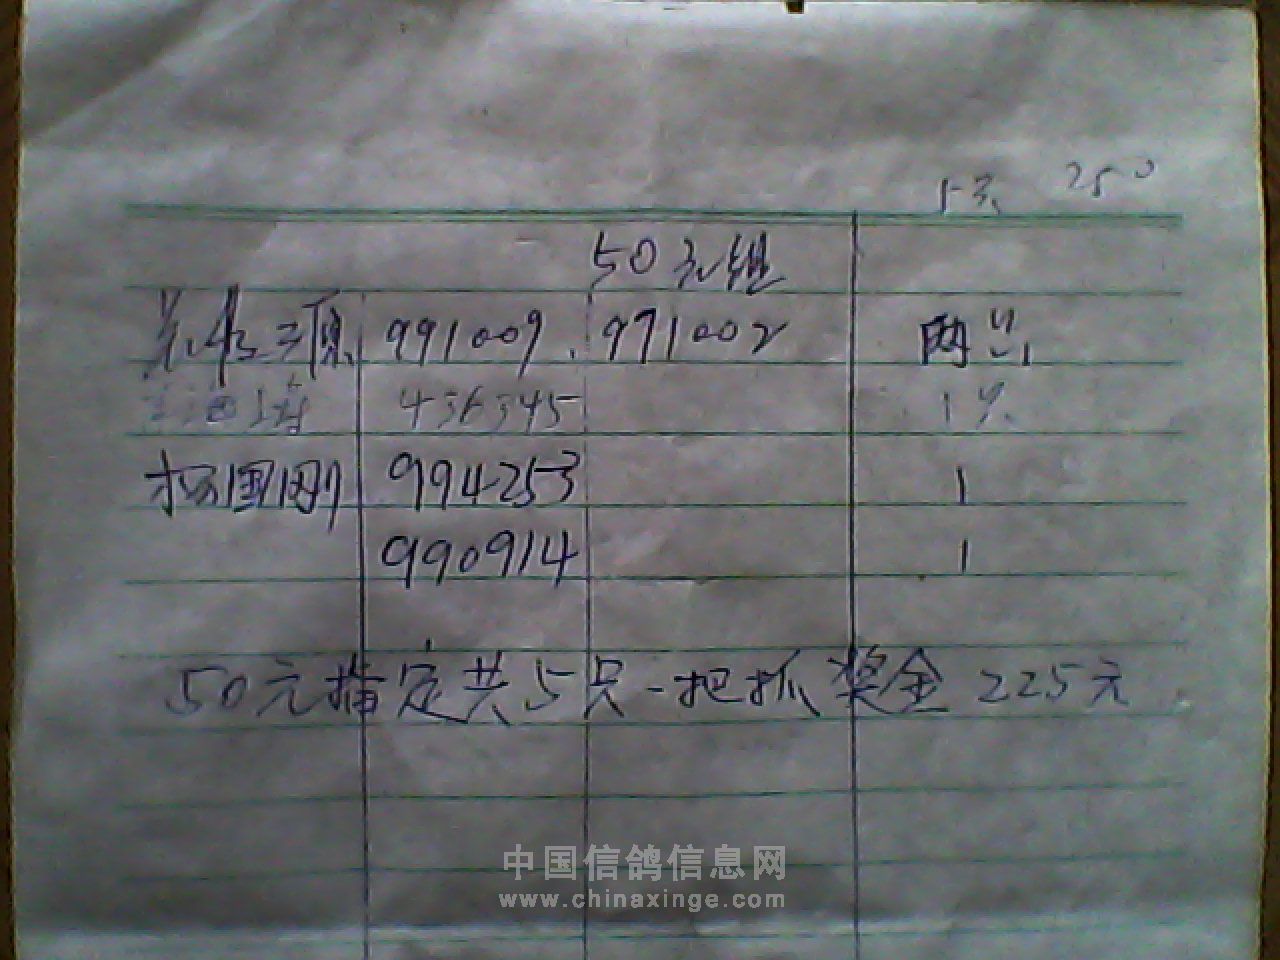 5只 250
50元组
991009 971002 两只
436345 1只
杨国刚 994253 1
990914 1
50元指定共5只一把抓奖金225元
中国信鸽信息网
www.chinaxinge.com